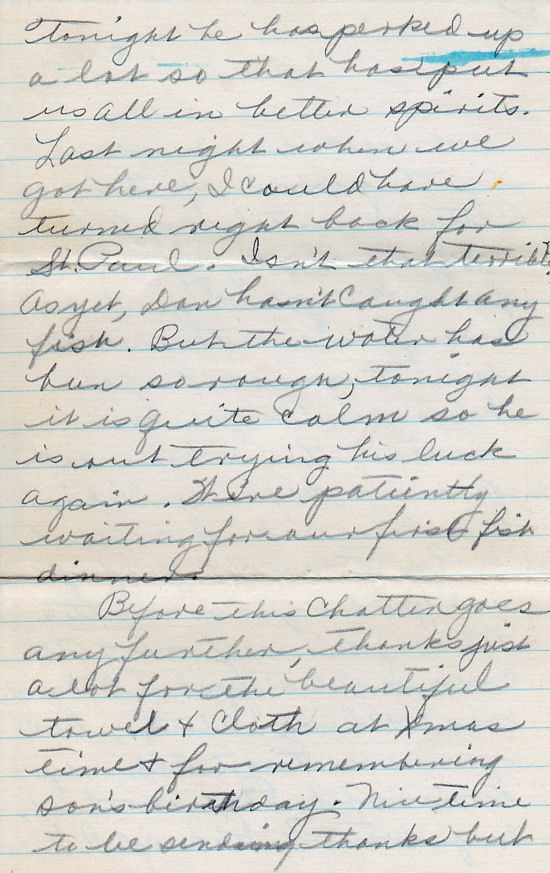 Tonight he has perked up
a lot so that has put
us all in better spirits.
Last night when we
got here, I could have
turned right back for
St. Paul. Isn't that terrible
As yet, Dan hasn't caught any
fish. But the water has
been so rough, tonight
it is quite calm so he
is out trying his luck
again. We're patiently
waiting for our first fish
dinner.
Before this chatter goes
any further, thanks just
a lot for the beautiful
towel & cloth at Xmas
time & for remembering
son's birthday. Nice time
to be sending thanks but